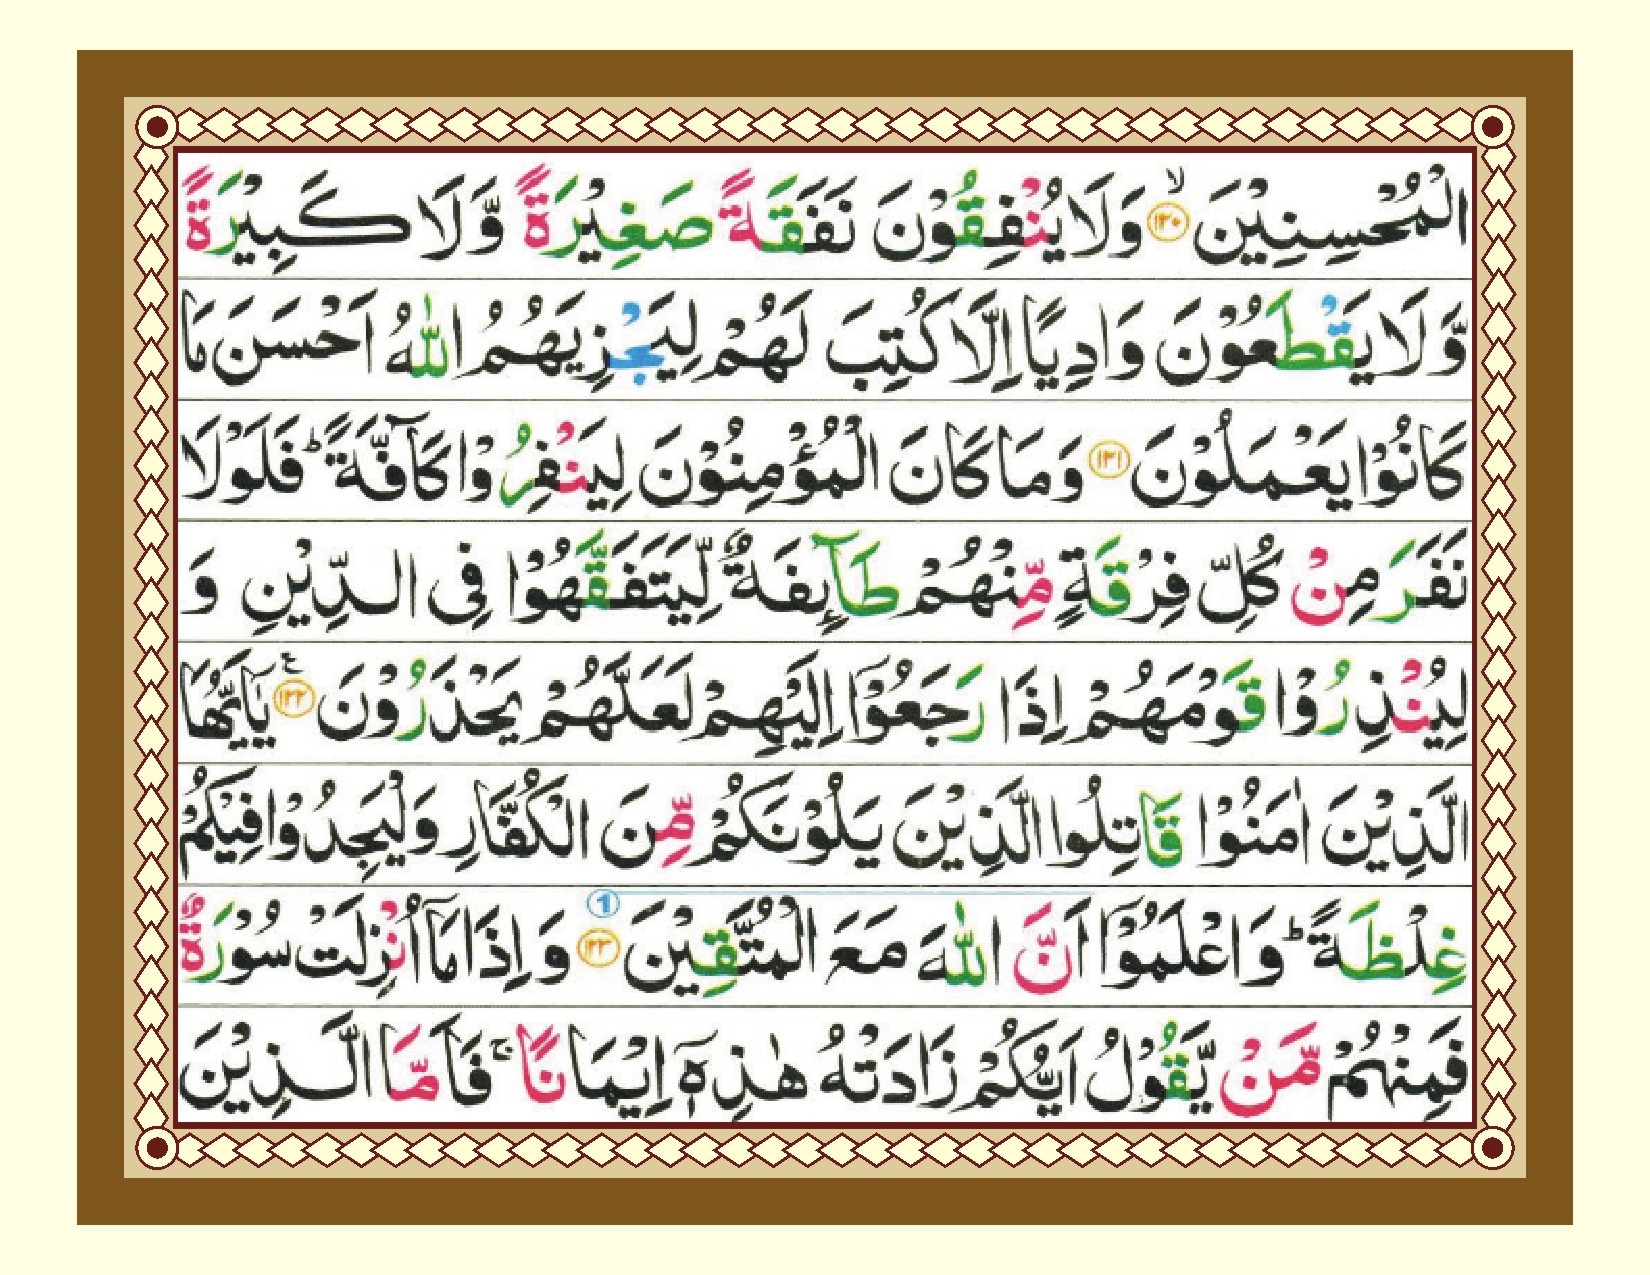 الْمُحْسِنِيْنَ ﴿۱۲۰﴾ۙ وَلَا يُنْفِقُوْنَ نَفَقَةً صَغِيْرَةً وَّلَا كَبِيْرَةً
وَّلَا يَقْطَعُوْنَ وَادِيًا اِلَّا كُتِبَ لَهُمْ لِيَجْزِيَهُمُ اللّٰهُ اَحْسَنَ مَا
كَانُوْا يَعْمَلُوْنَ ﴿۱۲۱﴾ وَمَا كَانَ الْمُؤْمِنُوْنَ لِيَنْفِرُوْا كَآفَّةً ؕ فَلَوْلَا
نَفَرَ مِنْ كُلِّ فِرْقَةٍ مِّنْهُمْ طَآىِٕفَةٌ لِّيَتَفَقَّهُوْا فِى الدِّيْنِ وَ
لِيُنْذِرُوْا قَوْمَهُمْ اِذَا رَجَعُوْۤا اِلَيْهِمْ لَعَلَّهُمْ يَحْذَرُوْنَ ﴿۱۲۲﴾ ع يٰۤاَيُّهَا
الَّذِيْنَ اٰمَنُوْا قَاتِلُوا الَّذِيْنَ يَلُوْنَكُمْ مِّنَ الْكُفَّارِ وَلْيَجِدُوْا فِيْكُمْ
غِلْظَةً ؕ وَاعْلَمُوْۤا اَنَّ اللّٰهَ مَعَ الْمُتَّقِيْنَ ﴿۱۲۳﴾ 1 وَاِذَا مَاۤ اُنْزِلَتْ سُوْرَةٌ
فَمِنْهُمْ مَّنْ يَّقُوْلُ اَيُّكُمْ زَادَتْهُ هٰذِهٖۤ اِيْمَانًا ۚ فَاَمَّا الَّذِيْنَ